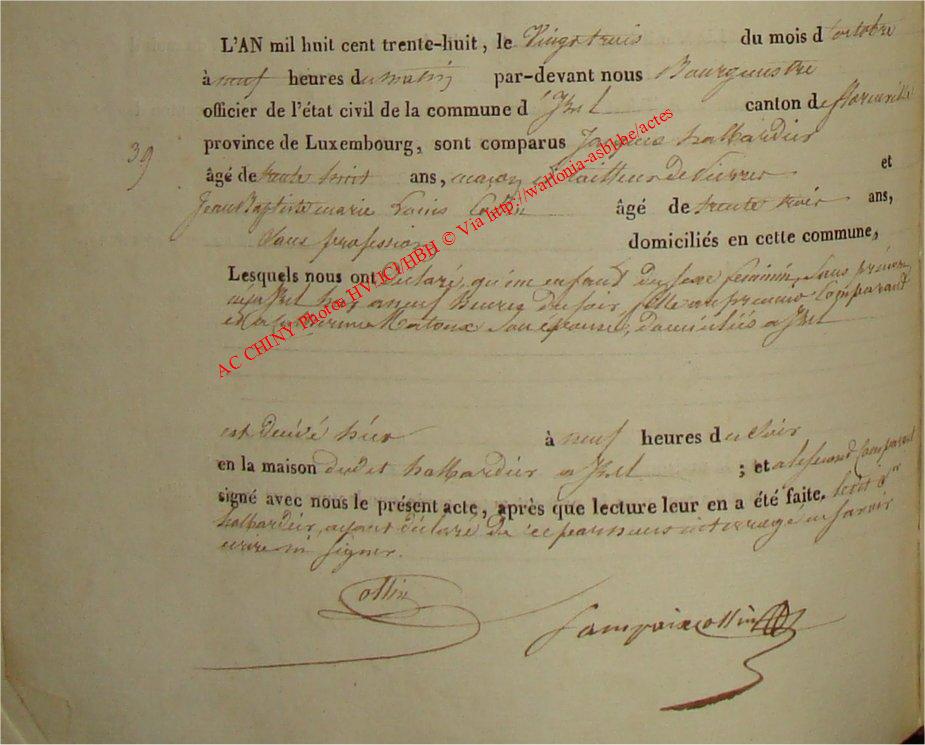 L'AN mil huit cent trente-huit, le Vingt trois du mois d'octobre
à neuf heures du matin par-devant nous Bourgmestre
officier de l'état civil de la commune d'Izel canton de florenville
39
province de Luxembourg, sont comparus Jacques hallardier
âgé de trente huit ans, maçon et tailleur de Pierres et
Jean Baptiste marie Louis Collin âgé de trente trois ans,
Sans profession domiciliés en cette commune,
Lesquels nous ont déclaré, qu'un enfant du sexe féminin, Sans prénom
né à Izel hier a neuf heures du soir, fille au premier Comparant
et a Mertoux Son épouse, domiciliés a Izel
est décédé hier à neuf heures du Soir
en la maison dudit hallardier a Izel ; et a le second Comparant
signé avec nous le présent acte, après que lecture leur en a été faite. ledit
hallardier, ayant déclaré de ce par nous interrogé ne savoir
écrire ni Signer.
Collin
AC CHINY Photos HV/ICI/HBH © Via http://wallonia-asbl.be/actes